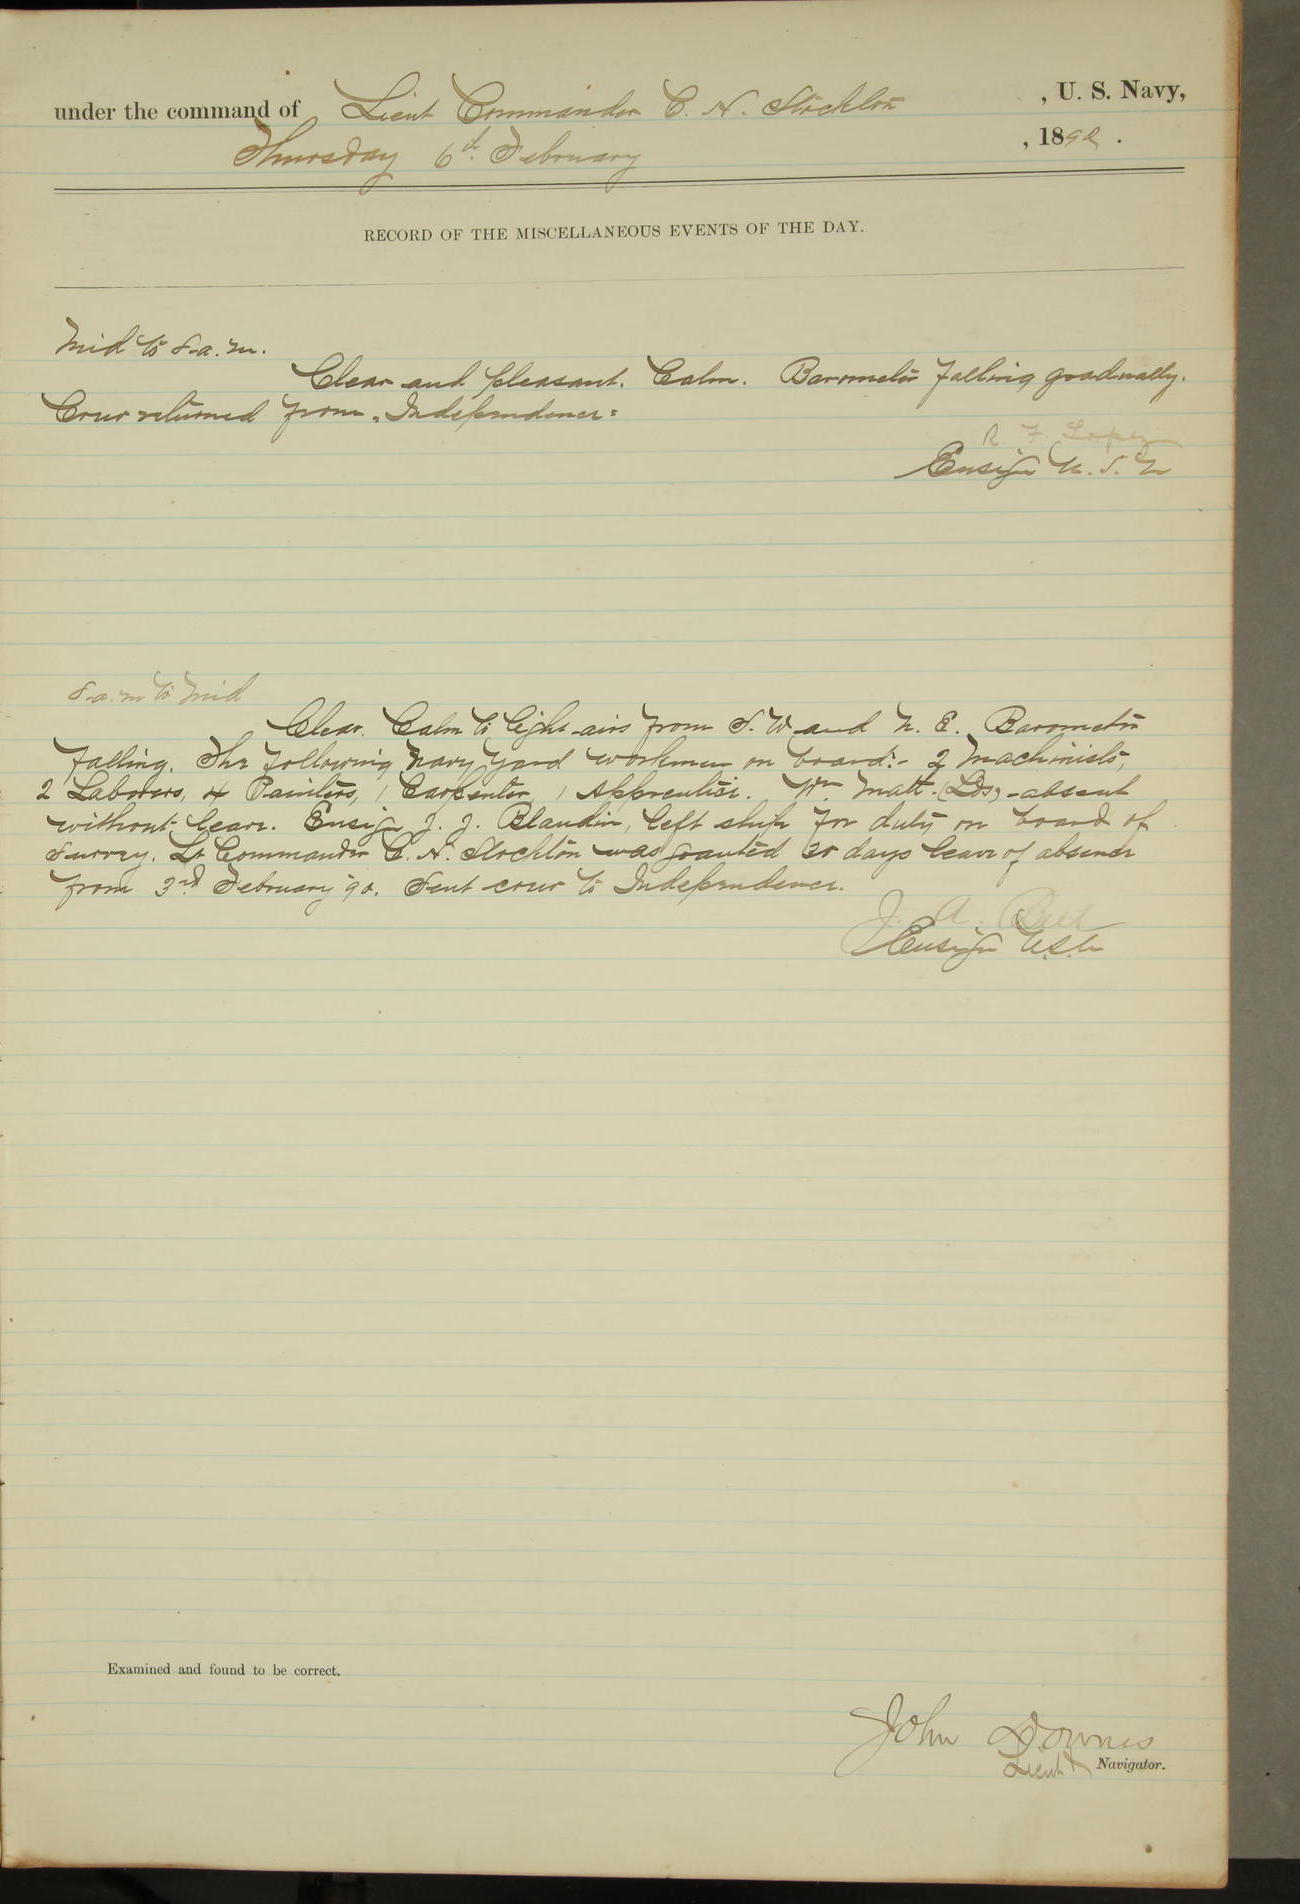 under the command of Lieut Commander C. H. Stockton , U. S. Navy,
Thursday 6th February , 1890 .
RECORD OF THE MISCELLANEOUS EVENTS OF THE DAY.
Mid to 8 a. m.
Clear and pleasant. Calm. Barometer falling gradually.
Crew returned from "Independence"
R. F. Lopez
Ensign U. S. N
8 a. m to Mid
Clear. Calm to light airs from S. W. and N. E. Barometer
falling. The following Navy Yard workmen on board:- 2 Machinists,
2 Laborers, 4 Painters, 1 Carpenter, 1 Apprentice. Wm Matt. (Lds) absent
without leave. Ensign J. J. Blandin, left ship for duty on board of
Survey. Lt Commander C. H. Stockton was granted 30 days leave of absence
from 3rd February '90. Sent crew to Independence.
J. A. Bell
Ensign U.S.N
Examined and found to be correct.
John Downes
Lieut & Navigator.